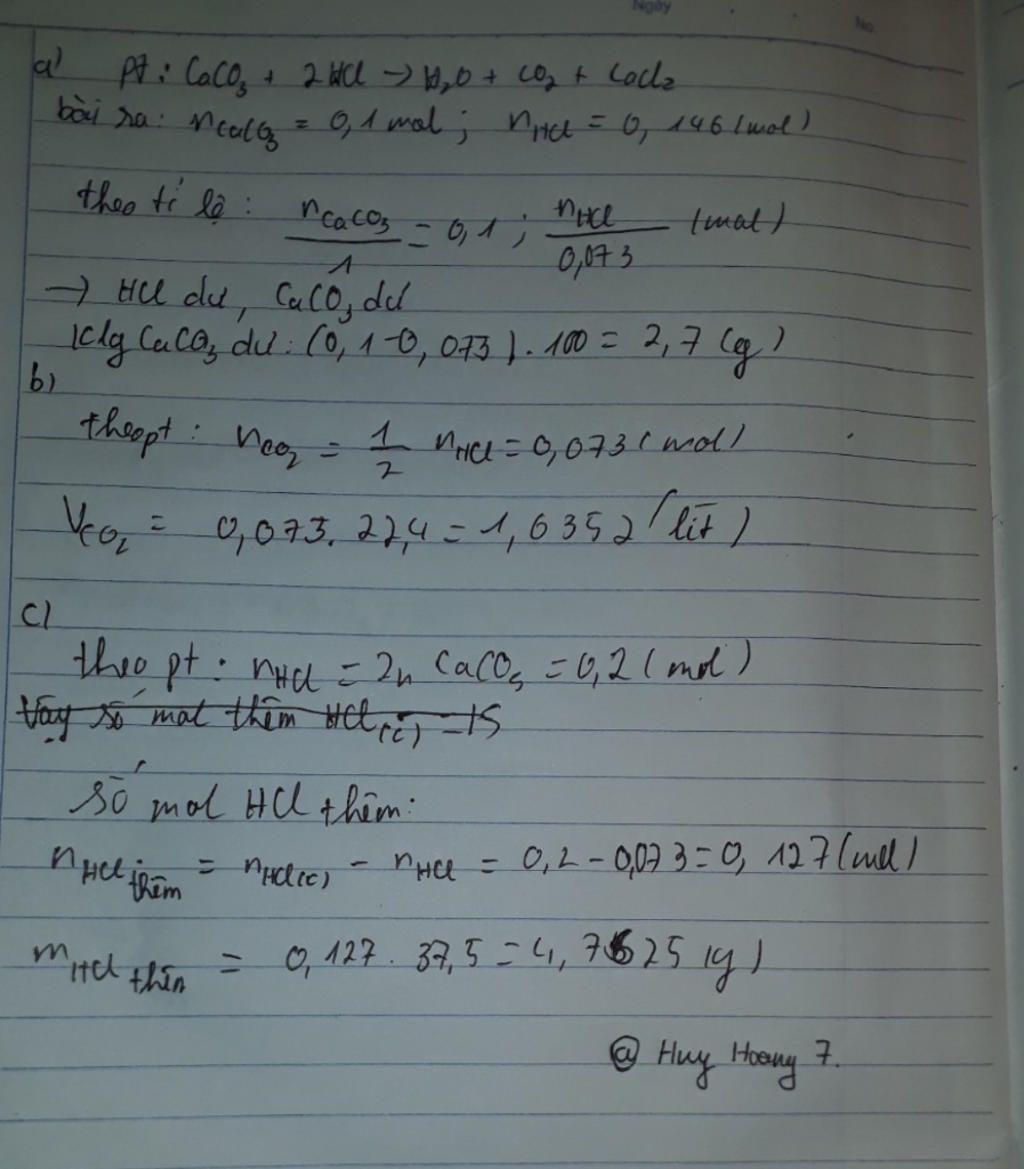 Ngày
No.
a) pt: CaCO₃ + 2HCl → H₂O + CO₂ + CaCl₂
bài ra: nCaCO₃ = 0,1 mol; nHCl = 0,146 (mol)
theo tỉ lệ: nCaCO₃/1 = 0,1; nHCl/0,073 (mol)
→ HCl dư, CaCO₃ dư
Klg CaCO₃ dư: (0,1-0,073).100 = 2,7 (g)
b)
theo pt: nCO₂ = 1/2 nHCl = 0,073 (mol)
VCO₂ = 0,073.22,4 = 1,6352 (lít)
c)
theo pt: nHCl = 2n CaCO₃ = 0,2 (mol)
Vậy số mol thêm HCl(c) = 15
Số mol HCl thêm:
nHCl thêm = nHCl(c) - nHCl = 0,2 - 0,073 = 0,127 (mol)
mHCl thêm = 0,127.37,5 = 4,7625 (g)
@ Huy Hoang 7.